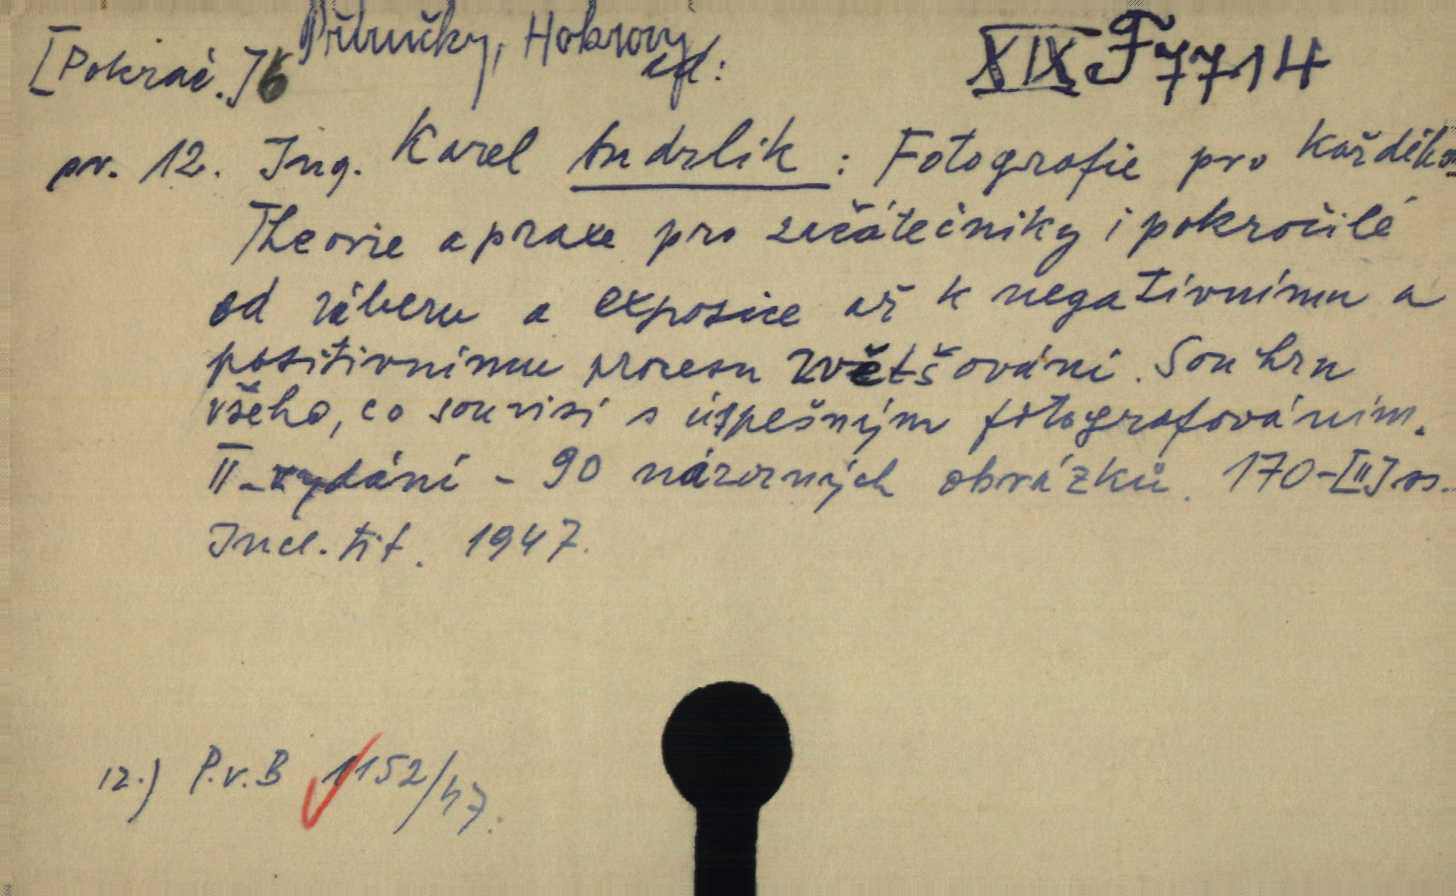 [Pokrač.] 6 Příručky, Hokrovy ed: XIX F 7714
sv. 12. Ing. Karel Andrlík : Fotografie pro každého
Theorie a praxe pro začátečníky i pokročilé
od záběru a exposice až k negativnímu a
positivnímu procesu zvětšování. Souhrn
všeho, co souvisí s úspešným fotografováním.
II. vydání - 90 názorných obrázků. 170-[II] ss.
Incl. tit. 1947.
12.) P.v.B 1152/47.